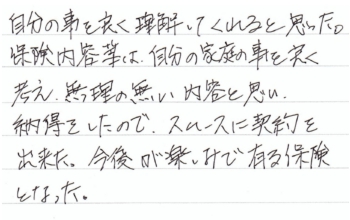 自分の事を良く理解してくれると思った。
保険内容等は、自分の家庭の事を良く
考え、無理の無い内容と思い、
納得をしたので、スムースに契約を
出来た。今後が楽しみで有る保険
となった。